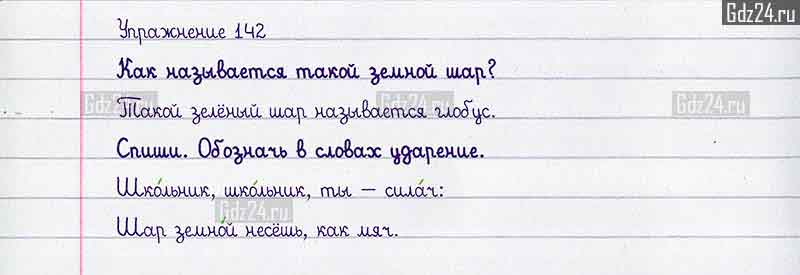 Gdz24.ru
Упражнение 142
Как называется такой земной шар?
Gdz24.ru Gdz24.ru Gdz24.ru
Такой зелёный шар называется глобус.
Спиши. Обозначь в словах ударение.
Шко́льник, шко́льник, ты – сила́ч:
Gdz24.ru
Шар земно́й несёшь, как мяч.